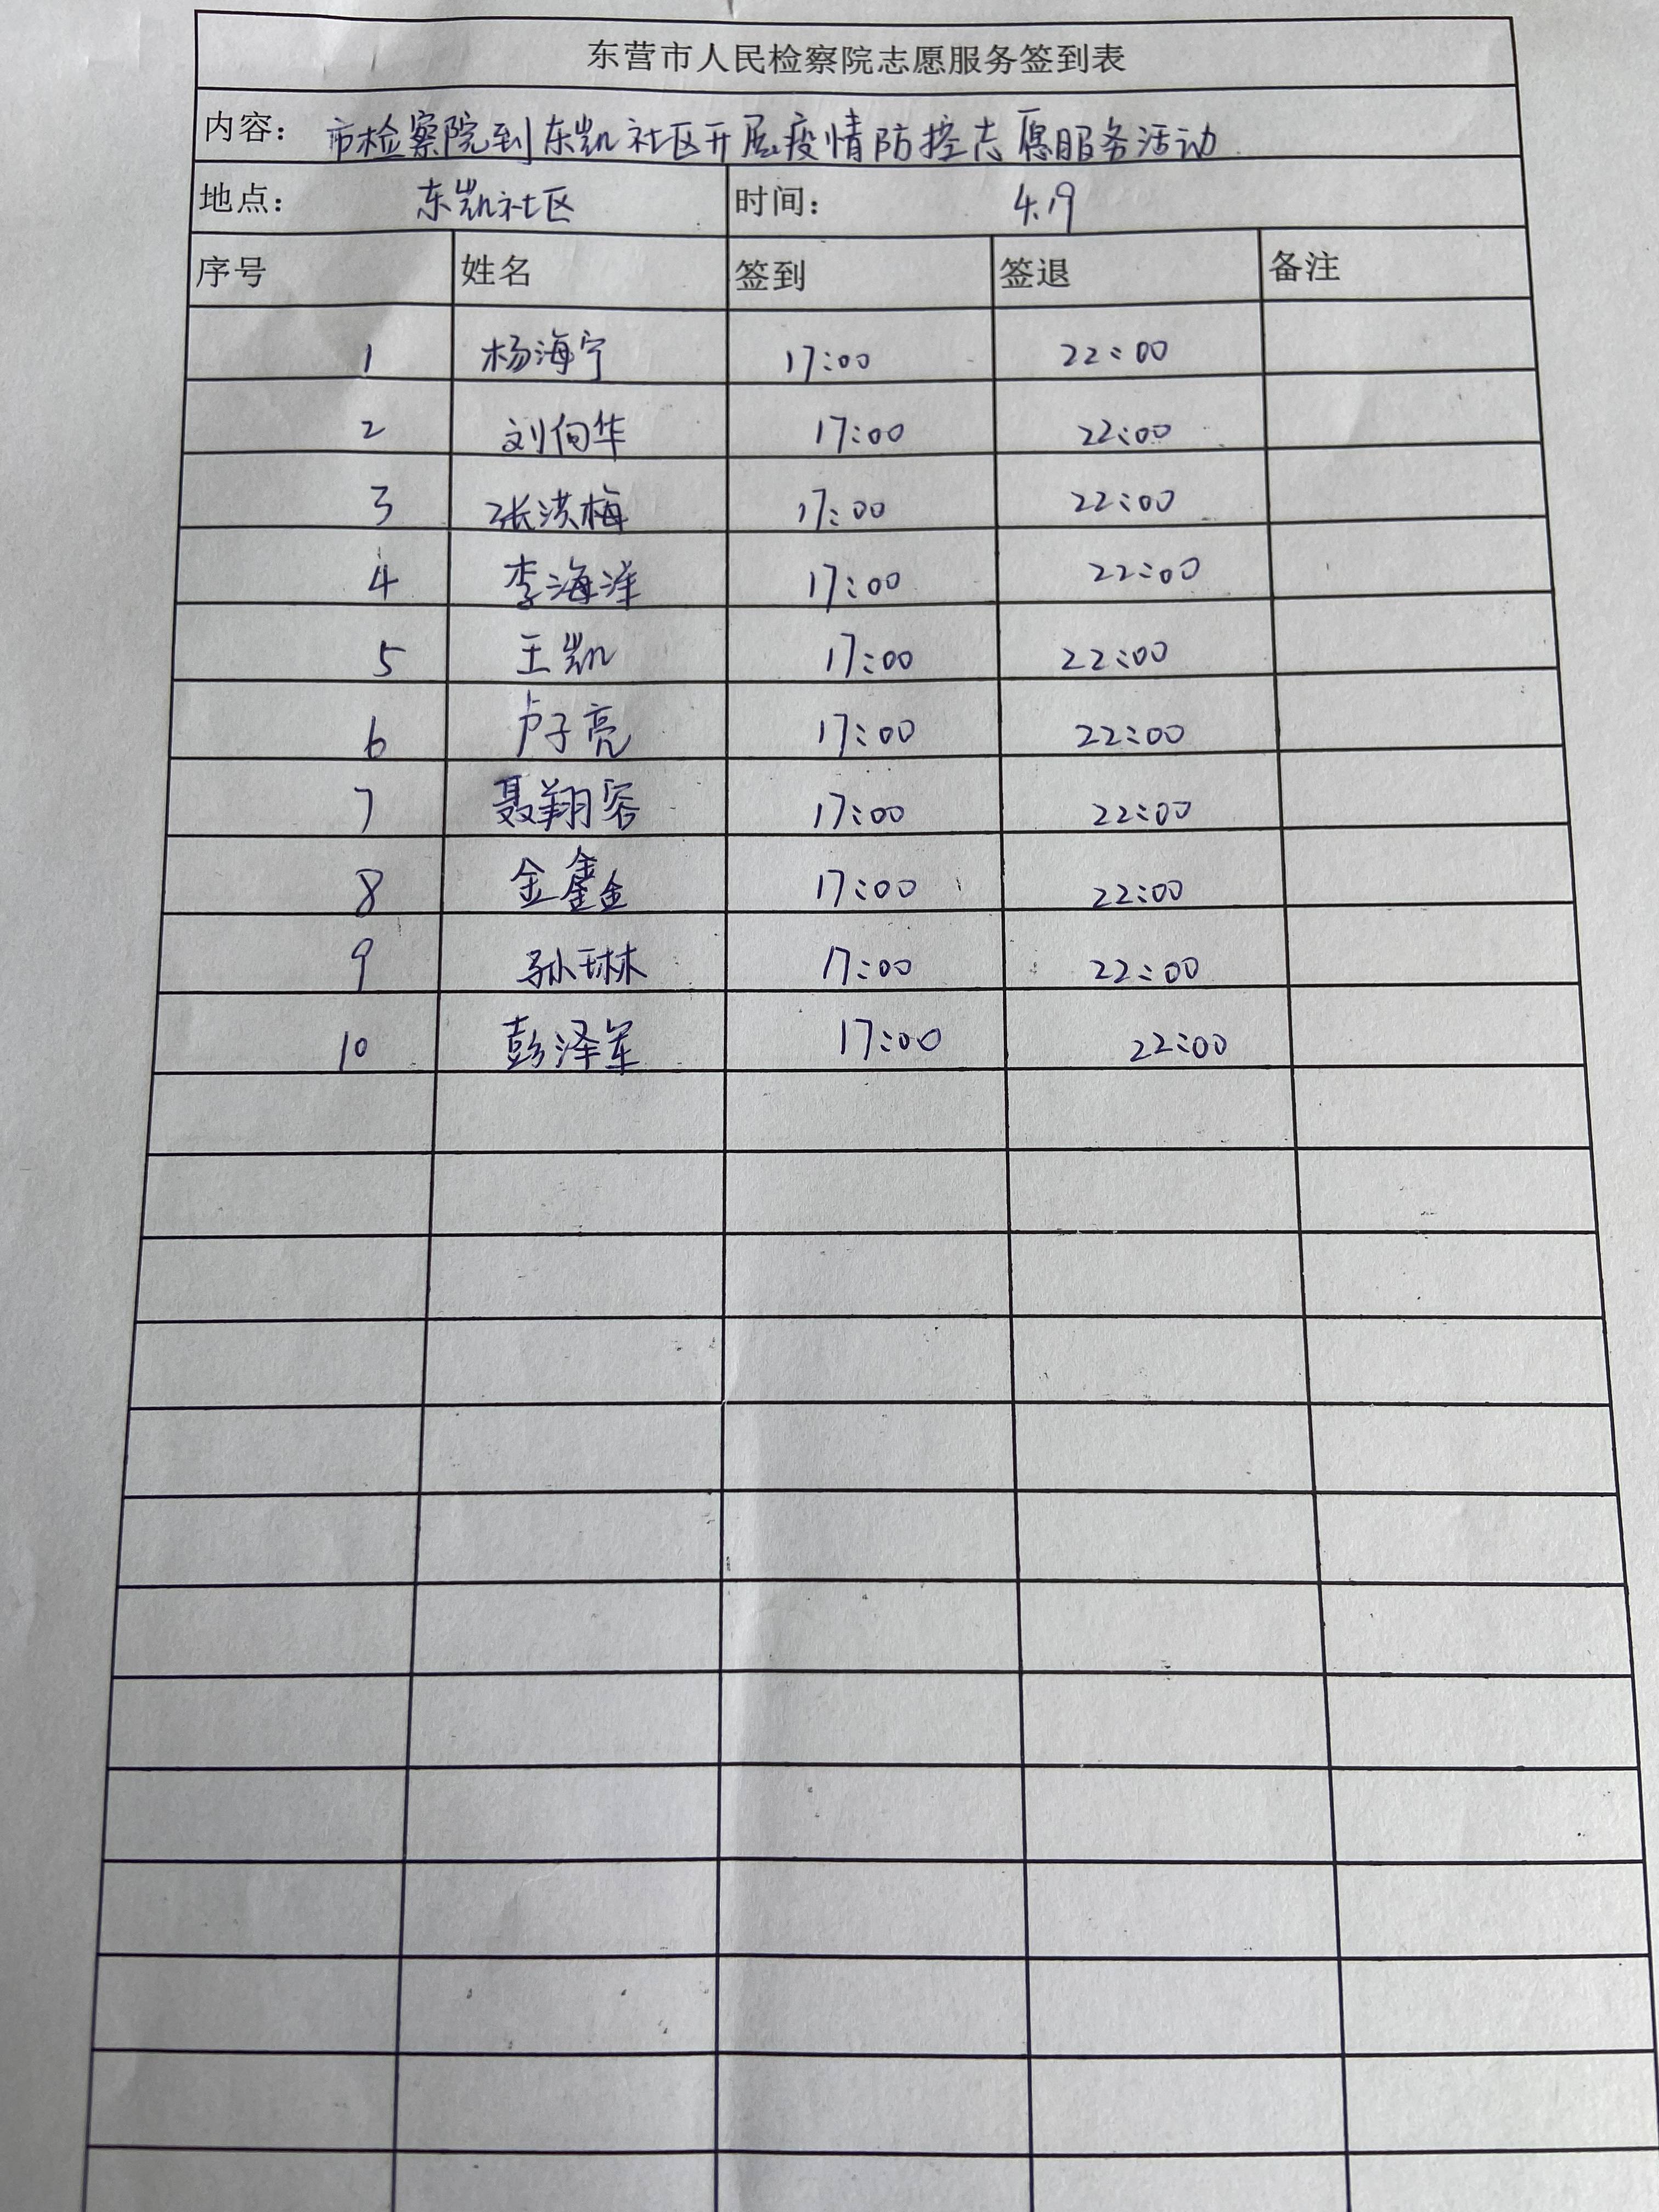 东营市人民检察院志愿服务签到表
内容： 市检察院到东凯社区开展疫情防控志愿服务活动
地点： 东凯社区 时间： 4.19
序号 姓名 签到 签退 备注
1 杨海宁 17:00 22:00
2 刘向华 17:00 22:00
3 张洪梅 17:00 22:00
4 李海洋 17:00 22:00
5 王凯 17:00 22:00
6 卢子亮 17:00 22:00
7 聂翔容 17:00 22:00
8 金鑫 17:00 22:00
9 孙琳 17:00 22:00
10 彭泽军 17:00 22:00